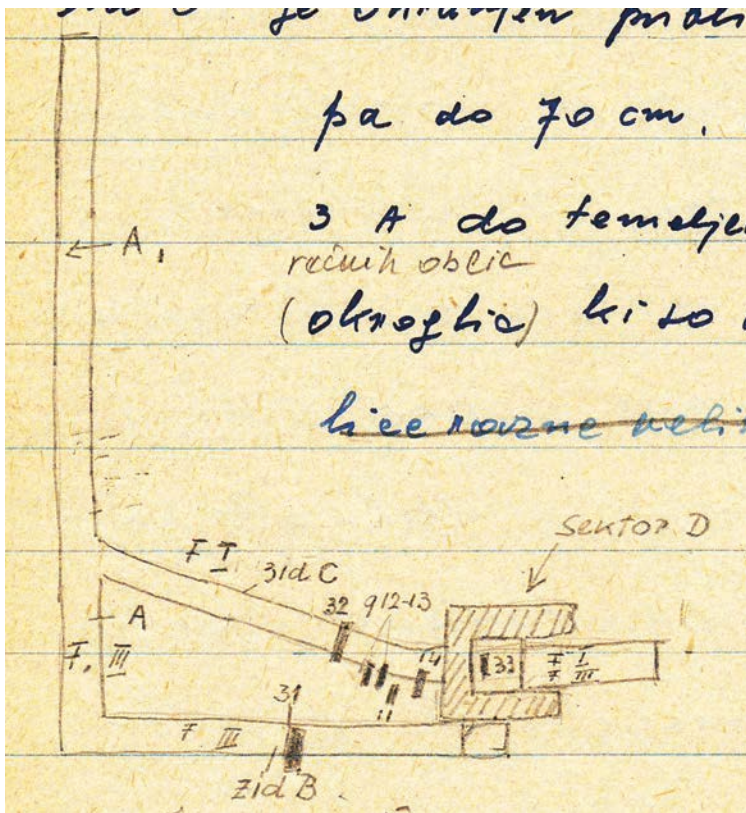 je
pa do 70 cm.
3 A do temelje
rečnih oblic
(okroglic) ki so
lice razne veli
← A₁
Sektor D
F I
zid C
32 912-13
A
F. III
14
33 F I
F III
11
31
F III
zid B.